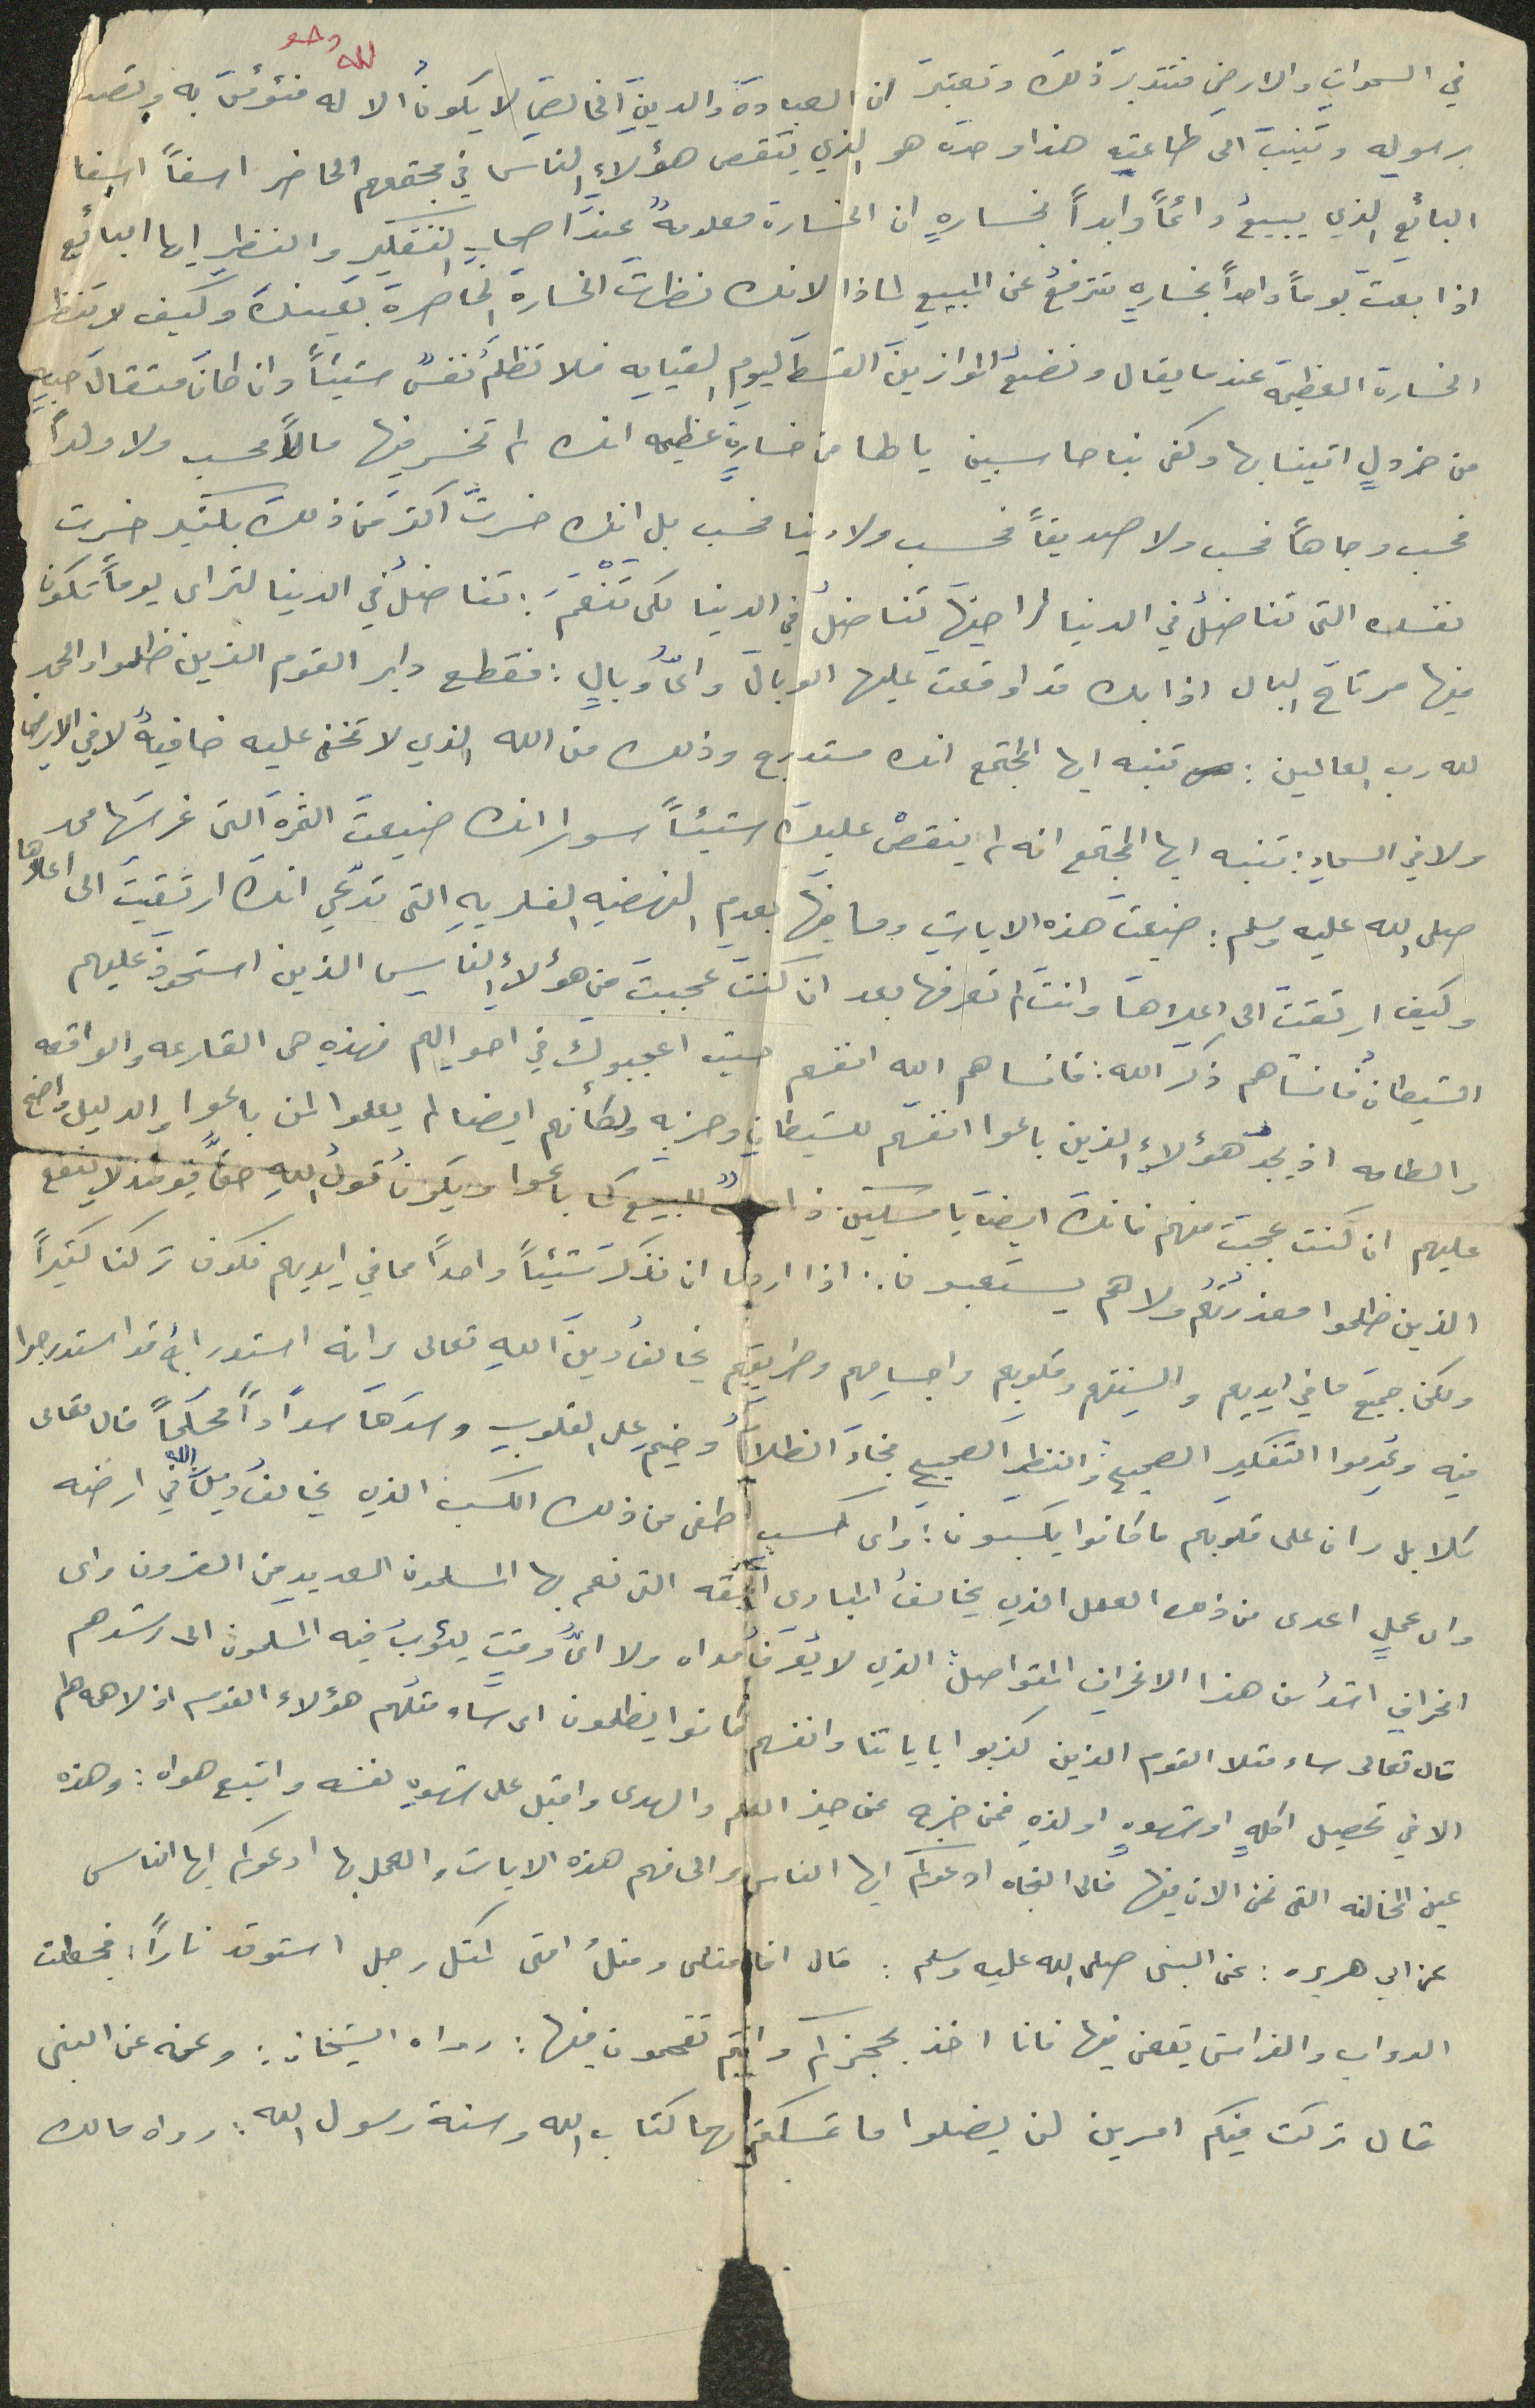 لله وحده
في السموات والارض فتتدبر ذلك وتعتبر ان العبادة والدين الخالص لا يكون الا له فتؤمن به وتصد
برسوله وتنيب الى طاعته هذا وحده هو الذي ينقص هؤلاء الناس في مجتمعهم الحاضر اسفاً ايها
البائع الذي يبيع دائماً وابداً بخساره ان الخسارة معلومة عند اصحاب التفكير والنظر ايها البائع
اذا بعت يوماً واحداً بخساره تترفع عن المبيع لماذا لانك نظرت الخسارة الحاضرة بعينك وكيف لا تنظر
الخسارة العظيمة عندما يقال ونضع الموازين القسط ليوم القيامه فلا تظلم نفس شيئاً وان كان مثقال حبه
من خردل اتينا بها وكفى بنا حاسبين يا لها من خسارة عظيمه انك لم تخسر فيها مالاً فحسب ولا ولداً
فحسب وجاهاً فحسب ولا صديقاً فحسب ولا دينا فحسب بل انك خسرت اكثر من ذلك بكثير خسرت
نفسك التي تناضل في الدنيا لراحتها تناضل في الدنيا لكى تنعم: تناضل في الدنيا لترى يوماً تكون
فيها مرتاح البال اذا بك قد اوقعت عليها الوبال واىُّ وبالٍ: فقطع دابر القوم الذين ظلموا والحمد
لله رب العالمين: تنبه ايها المجتمع انك مستدرج وذلك من الله الذي لا تخفى عليه خافيةٌ لا في الارض
ولا في السماء: تنبه ايها المجتمع انه لم ينقص عليك شيئاً سوى انك ضيعت الثمرة التي غرسها محمد
صلى الله عليه وسلم: ضيعت هذه الايات وما فيها بعدم النهضه الفكريه التي تدعي انك ارتقيت الى اعلاها
وكيف ارتقت الى اعلاها وانت لم تعرفها بعد ان كنت عجبت من هؤلاء الناس الذين استحوذ عليهم
الشيطان فانساهم ذكر الله: فانساهم الله انفسهم حيث اعجبوك في احوالهم فهذه هى القارعه والواقعه
والطامه اذ يجد هؤلاء الذين باعوا انفسهم للشيطان وحزبه ولكأنهم ايضا لم يعلموا لمن باعوا والدليل واضح
عليهم ان كنت عجبت منهم فانك ايضا يا مسكين للبيع كما باعوا ويكون قول الله حقاً فيومئذ لا ينفع
الذين ظلموا معذرتهم ولا هم يستعتبون: اذا اردنا ان نذكر شيئاً واحداً مما في ايديهم فكوف تركنا كثيراً
ولكن جميع ما في ايديهم والسنتهم وقلوبهم واجسامهم وطريقتهم يخالف دين الله تعالى وانه استدراج قد استدرجوا
فيه وعُدِموا التفكير الصحيح والنظر الصحيح فجاء الظلام وخيم على القلوب وسدها سداً محكماً قال تعالى
كلا بل ران على قلوبهم ما كانوا يكسبون: واى كسب اطغى من ذلك الكسب الذي يخالف دين الله في ارضه
واى عملٍ اعدى من ذلك العمل الذي يخالف المبادى التى نعم بها المسلمون العديد من القرون واى
انحراف اشد من هذا الانحراف المتواصل الذي لا يُعرف مداه ولا اىُّ وقتٍ يتوب فيه المسلمون الى رشدهم
قال تعالى ساء مثلا القوم الذين كذبوا باياتنا وانفسهم كانوا يظلمون اى ساء مثلهم هؤلاء القوم اذ لا هم لهم
الا في تحصيل اكلهٍ او شهوهٍ او لذهٍ فمن خرج عن حيز العلم والهدى واقبل على شهوه نفسه واتبع هواه: وهذه
عين المخالفه التى نحن الان فيها فالى النجاه ادعوكم ايها الناس والى فهم هذه الايات والعمل بها ادعوكم ايها الناس
عن ابي هريره: عن النبى صلى الله عليه وسلم: قال انما مثلى ومثلُ امتى كمثل رجل استوقد ناراً: فجعلت
الدواب والفراش يقعن فيها فانا اخذ بحجزكم وانتم تقحمون فيها: رواه الشيخان: وعنه عن النبى
قال تركت فيكم امرين لن يضلوا ما تمسكتم بهما كتاب الله وسنة رسول الله: رواه مالك